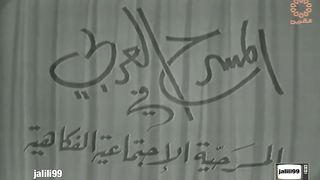 المسرح العربي
في
المسرحية الإجتماعية الفكاهية
jalili99
jalili99